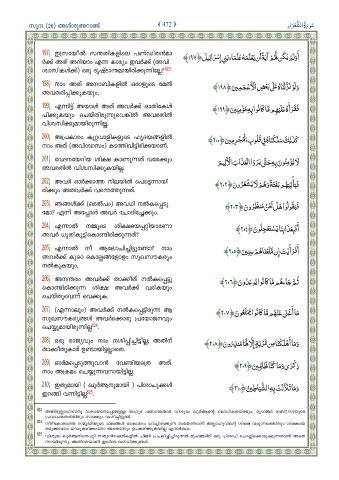 സൂറഃ (26) അശ്ശുഅറാഅ് ❴ 472 ❵ سُورَةُ الشُّعَرَاءِ
197) ഇസ്രായീൽ സന്തതികളിലെ പണ്ഡിതൻമാ
ർക്ക് അത് അറിയാം എന്ന കാര്യം ഇവർക്ക് (അവി
ശ്വാസികൾക്ക്) ഒരു ദൃഷ്ടാന്തമായിരിക്കുന്നില്ലേ?
أَوَلَمْ يَكُن لَّهُمْ آيَةً أَن يَعْلَمَهُ عُلَمَاءُ بَنِي إِسْرَائِيلَ ﴿١٩٧﴾
198) നാം അത് അനറബികളിൽ ഒരാളുടെ മേൽ
അവതരിപ്പിക്കുകയും,
وَلَوْ نَزَّلْنَاهُ عَلَىٰ بَعْضِ الْأَعْجَمِينَ ﴿١٩٨﴾
199) എന്നിട്ട് അയാൾ അത് അവർക്ക് ഓതികേൾ
പിക്കുകയും ചെയ്തിരുന്നുവെങ്കിൽ അവരതിൽ
വിശ്വസിക്കുമായിരുന്നില്ല.
فَقَرَأَهُ عَلَيْهِم مَّا كَانُوا بِهِ مُؤْمِنِينَ ﴿١٩٩﴾
200) അപ്രകാരം കുറ്റവാളികളുടെ ഹൃദയങ്ങളിൽ
നാം അത് (അവിശ്വാസം) കടത്തിവിട്ടിരിക്കയാണ്.
كَذَٰلِكَ سَلَكْنَاهُ فِي قُلُوبِ الْمُجْرِمِينَ ﴿٢٠٠﴾
201) വേദനയേറിയ ശിക്ഷ കാണുന്നത് വരേക്കും
അവരതിൽ വിശ്വസിക്കുകയില്ല.
لَا يُؤْمِنُونَ بِهِ حَتَّىٰ يَرَوُا الْعَذَابَ الْأَلِيمَ
202) അവർ ഓർക്കാത്ത നിലയിൽ പെട്ടെന്നായി
രിക്കും അതവർക്ക് വന്നെത്തുന്നത്.
فَيَأْتِيَهُم بَغْتَةً وَهُمْ لَا يَشْعُرُونَ ﴿٢٠٢﴾
203) ഞങ്ങൾക്ക് (ഒരൽപം) അവധി നൽകപ്പെടു
മോ? എന്ന് അപ്പോൾ അവർ ചോദിച്ചേക്കും.
فَيَقُولُوا هَلْ نَحْنُ مُنظَرُونَ ﴿٢٠٣﴾
204) എന്നാൽ നമ്മുടെ ശിക്ഷയെപ്പറ്റിയാണോ
അവർ ധൃതികൂട്ടികൊണ്ടിരിക്കുന്നത്?
أَفَبِعَذَابِنَا يَسْتَعْجِلُونَ ﴿٢٠٤﴾
205) എന്നാൽ നീ ആലോചിച്ചിട്ടുണ്ടോ? നാം
അവർക്ക് കുറെ കൊല്ലങ്ങളോളം സുഖസൗകര്യം
നൽകുകയും,
أَفَرَأَيْتَ إِن مَّتَّعْنَاهُمْ سِنِينَ ﴿٢٠٥﴾
206) അനന്തരം അവർക്ക് താക്കീത് നൽകപ്പെട്ടു
കൊണ്ടിരിക്കുന്ന ശിക്ഷ അവർക്ക് വരികയും
ചെയ്തുവെന്ന് വെക്കുക.
ثُمَّ جَاءَهُم مَّا كَانُوا يُوعَدُونَ ﴿٢٠٦﴾
207) (എന്നാലും) അവർക്ക് നൽകപ്പെട്ടിരുന്ന ആ
സുഖസൗകര്യങ്ങൾ അവർക്കൊരു പ്രയോജനവും
ചെയ്യുമായിരുന്നില്ല
مَا أَغْنَىٰ عَنْهُم مَّا كَانُوا يُمَتَّعُونَ ﴿٢٠٧﴾
208) ഒരു രാജ്യവും നാം നശിപ്പിച്ചിട്ടില്ല; അതിന്
താക്കീതുകാർ ഉണ്ടായിട്ടല്ലാതെ.
وَمَا أَهْلَكْنَا مِن قَرْيَةٍ إِلَّا لَهَا مُنذِرُونَ ﴿٢٠٨﴾
209) ഓർമപ്പെടുത്തുവാൻ വേണ്ടിയത്രെ അത്.
നാം അക്രമം ചെയ്യുന്നവനായിട്ടില്ല.
ذِكْرَىٰ وَمَا كُنَّا ظَالِمِينَ ﴿٢٠٩﴾
210) ഇതുമായി ( ഖുർആനുമായി ) പിശാചുക്കൾ
ഇറങ്ങി വന്നിട്ടില്ല
وَمَا تَنَزَّلَتْ بِهِ الشَّيَاطِينُ ﴿٢١٠﴾